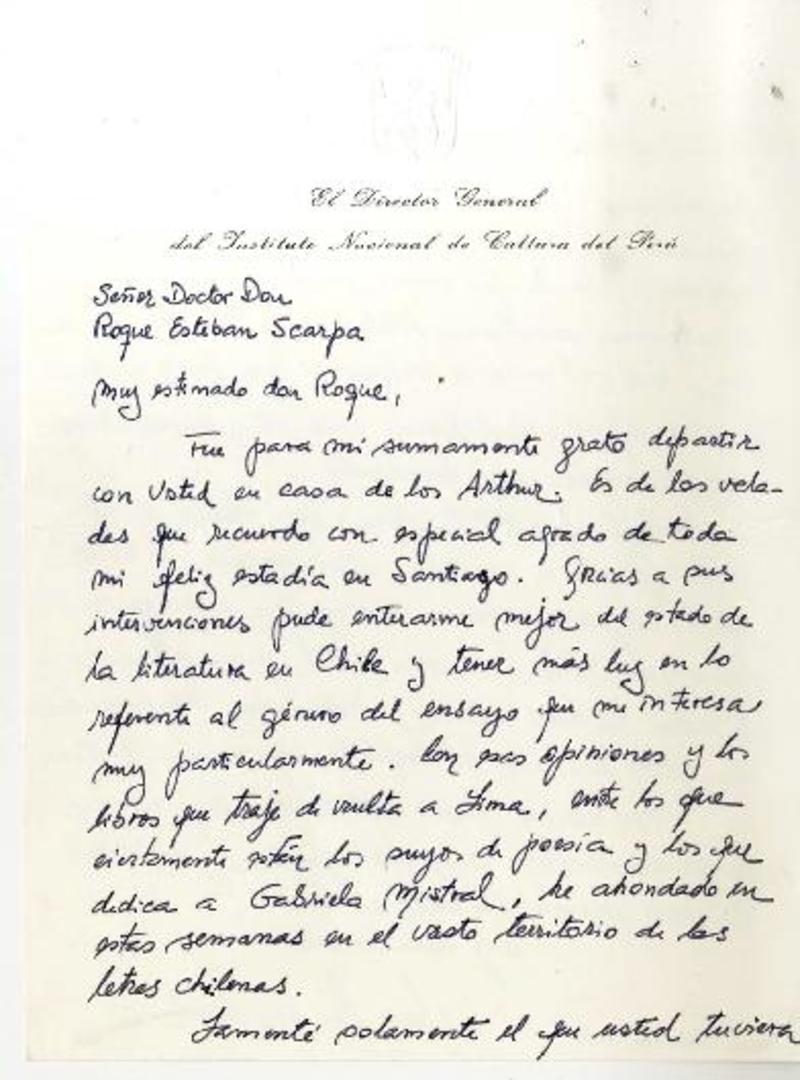 El Director General
del Instituto Nacional de Cultura del Perú
Señor Doctor Don
Roque Esteban Scarpa
Muy estimado don Roque,
Fue para mi sumamente grato departir
con Usted en casa de los Arthur. Es de las vela-
das que recuerdo con especial agrado de toda
mi feliz estadía en Santiago. Gracias a sus
intervenciones pude enterarme mejor del estado de
la literatura en Chile y tener más luz en lo
referente al género del ensayo que me interesa
muy particularmente. Con esas opiniones y los
libros que traje de vuelta a Lima, entre los que
ciertamente están los suyos de poesía y los que
dedica a Gabriela Mistral, he ahondado en
estas semanas en el vasto territorio de las
letras chilenas.
Lamenté solamente el que usted tuviera